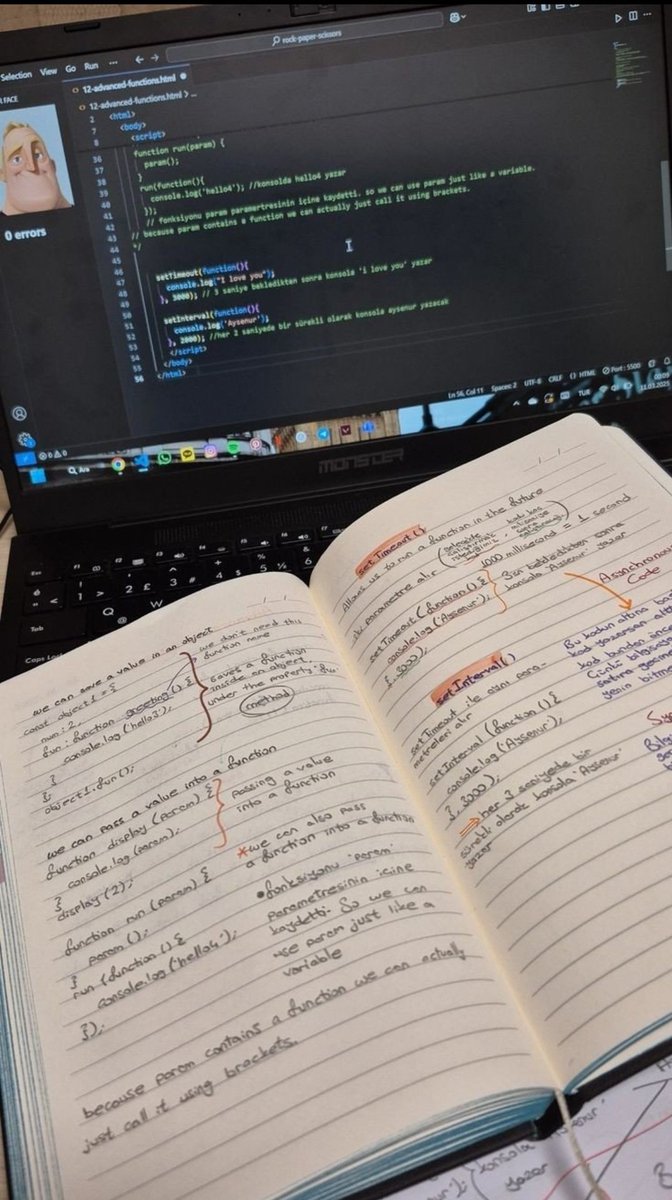 Selection View Go Run ... rock-paper-scissors
FACE
0 errors
12-advanced-functions.html
12-advanced-functions.html > ...
2 <html>
7 <body>
8 <script>
36 function run(param) {
37 param();
38 }
39 run(function(){
40 console.log('hello4'); //konsolda hello4 yazar
41 });
42 // fonksiyonu param paramertresinin içine kaydetti. so we can use param just like a variable.
43 // because param contains a function we can actually just call it using brackets.
44 */
45
46 setTimeout(function(){
47 console.log("I love you");
48 }, 3000); // 3 saniye bekledikten sonra konsola 'i love you' yazar
49
50 setInterval(function(){
51 console.log('Aysenur');
52 }, 2000); //her 2 saniyede bir sürekli olarak konsola aysenur yazacak
53 </script>
54 </body>
55 </html>
56
Ln 56, Col 11 Spaces: 2 UTF-8 CRLF {} HTML Port : 5500
Ara
TUR
00:03
MONSTER
Esc F1 F2 F3 F4 F5 F6 F7
Tab Q W
Caps Lock
we can save a value in an object
const object1 = {
num : 2,
fun : function greeting () {
console.log('hello3');
}
};
object1.fun();
we don't need this
function name
saves a function
inside an object
under the property 'fun'
method
we can pass a value into a function
function display (param) {
console.log(param);
}
display(2);
Passing a value
into a function
*we can also pass
a function into a function
function run (param) {
param ();
}
run (function () {
console.log('hello4');
});
• fonksiyonu 'param'
parametresinin içine
kaydetti. So we can
use param just like a
variable
because param contains a function we can actually
just call it using brackets.
setTimeout()
Allows us to run a function in the future
iki parametre alır
1000 millisecond = 1 second
setTimeout (function () {
console.log('Aysenur');
}, 3000);
3sn bekledikten sonra
konsola 'Aysenur' yazar
Asynchronous
Code
Bu kodun altına
setInterval()
setTimeout ile aynı para-
metreleri alır
setInterval (function () {
console.log('Aysenur');
}, 3000);
her 3 saniyede bir
sürekli olarak konsola 'Aysenur'
yazar
yazar